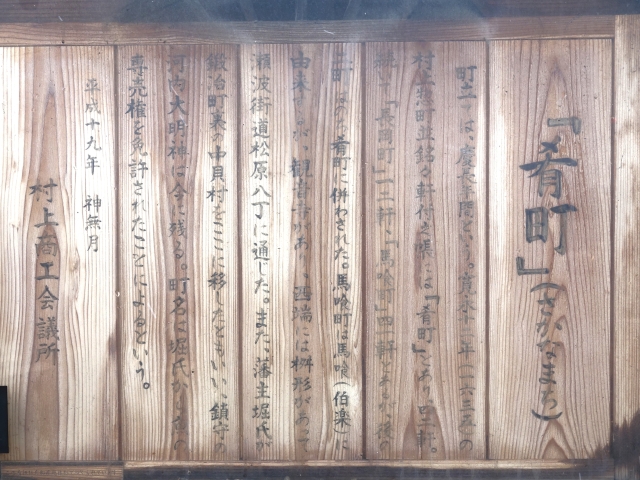 「肴町」(さかなまち)
町立は、慶長年間という。寛永十二年(一六三五)の
村上惣町並銘々軒付き帳には「肴町」とあり四三軒。
「長岡町」一二軒、「馬喰町」四軒とあるが、後の
肴町に併わされた。馬喰町は馬喰(伯楽)に
由来するが、観音寺があり、西端には桝形があって
瀬波街道松原八丁に通じた。また藩主堀氏が
鍛冶町裏の中貝村をここに移したともいい、鎮守の
河内大明神は今に残る。町名は堀氏が
専売権を免許されたことによるという。
平成十九年 神無月
村上商工会議所